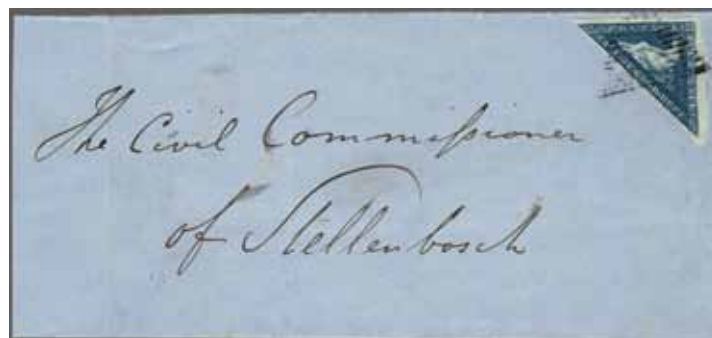 The Civil Commissioner
of Stellenbosch